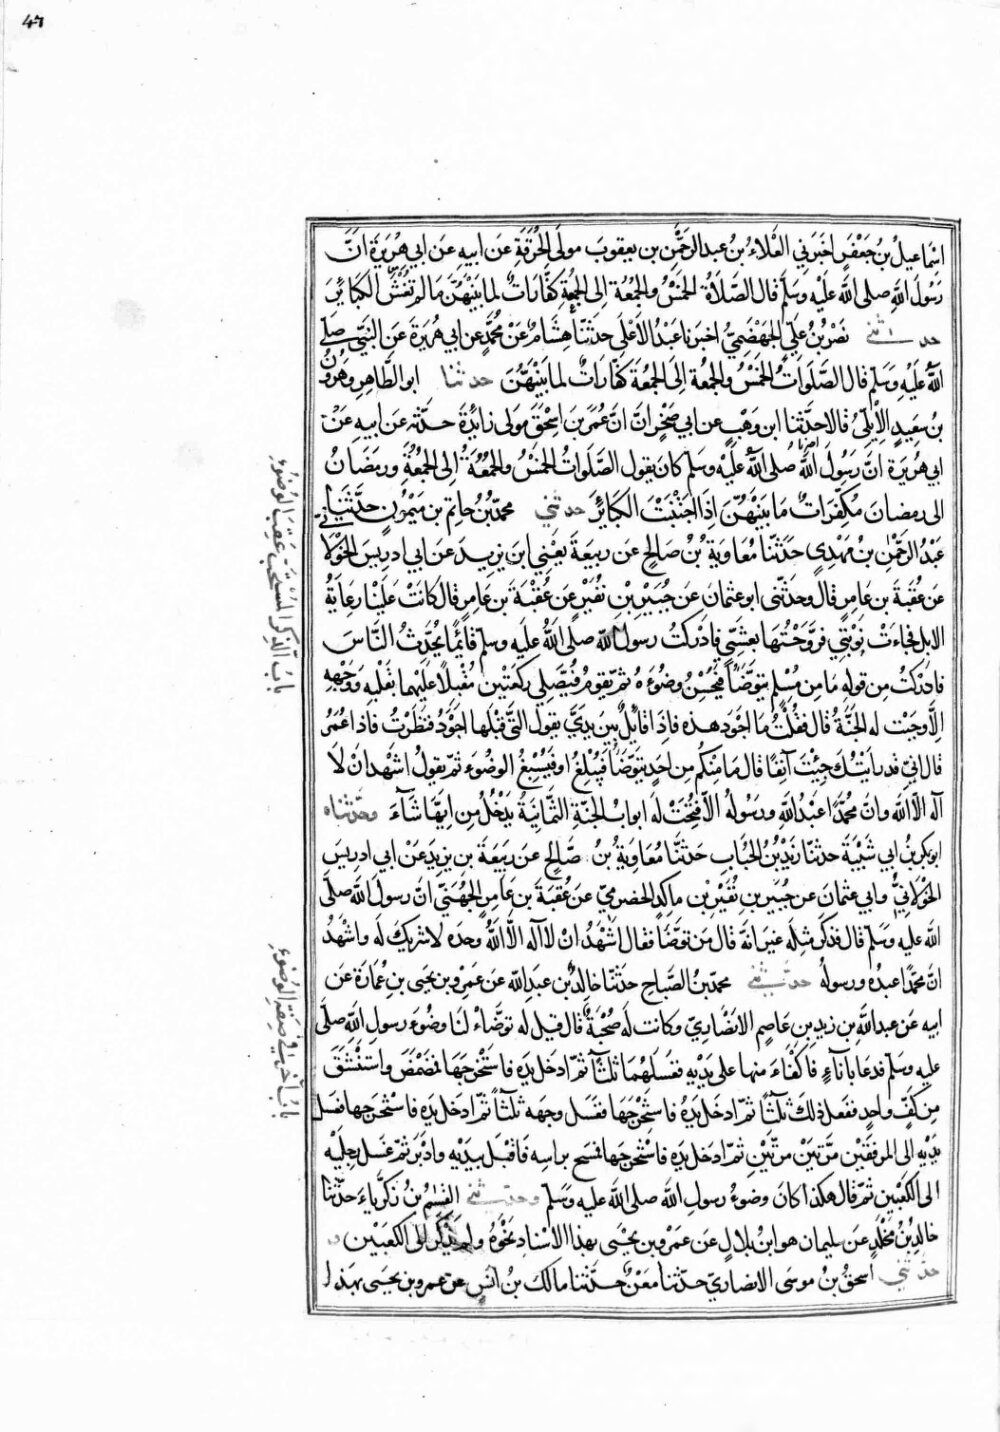 47
اسماعيل بن جعفر اخبرني العلاء بن عبد الرحمن بن يعقوب مولى الحرقة عن ابيه عن ابي هريرة ان
رسول الله صلى الله عليه وسلم قال الصلاة الخمس والجمعة الى الجمعة كفارات لما بينهن ما لم تغش الكبائر
حدثني نصر بن علي الجهضمي اخبرنا عبد الاعلى حدثنا هشام عن محمد عن ابي هريرة عن النبي صلى
الله عليه وسلم قال الصلوات الخمس والجمعة الى الجمعة كفارات لما بينهن حدثنا ابو الطاهر وهرون
بن سعيد الايلي قالا حدثنا ابن وهب عن ابي صخر ان عمر بن اسحق مولى زائدة حدثه عن ابيه عن
ابي هريرة ان رسول الله صلى الله عليه وسلم كان يقول الصلوات الخمس والجمعة الى الجمعة ورمضان
الى رمضان مكفرات ما بينهن اذا اجتنبت الكبائر حدثني محمد بن حاتم بن ميمون حدثنا
عبد الرحمن بن مهدي حدثنا معاوية بن صالح عن ربيعة يعني ابن يزيد عن ابي ادريس الخولاني
عن عقبة بن عامر قال وحدثني ابو عثمان عن جبير بن نفير عن عقبة بن عامر قال كانت علينا رعاية
الابل فجاءت نوبتي فروحتها بعشي فادركت رسول الله صلى الله عليه وسلم قائما يحدث الناس
فادركت من قوله ما من مسلم يتوضأ فيحسن وضوءه ثم يقوم فيصلي ركعتين مقبلا عليهما بقلبه ووجهه
الا وجبت له الجنة قال فقلت ما اجود هذه فاذا قائل بين يدي يقول التي قبلها اجود فنظرت فاذا عمر
قال اني قد رايتك جئت آنفا قال ما منكم من احد يتوضأ فيبلغ او فيسبغ الوضوء ثم يقول اشهد ان لا
اله الا الله وان محمدا عبد الله ورسوله الا فتحت له ابواب الجنة الثمانية يدخل من ايها شاء وحدثناه
ابو بكر بن ابي شيبة حدثنا زيد بن الحباب حدثنا معاوية بن صالح عن ربيعة بن يزيد عن ابي ادريس
الخولاني وابي عثمان عن جبير بن نفير بن مالك الحضرمي عن عقبة بن عامر الجهني ان رسول الله صلى
الله عليه وسلم قال فذكر مثله غير انه قال من توضأ فقال اشهد ان لا اله الا الله وحده لا شريك له واشهد
ان محمدا عبده ورسوله حدثني محمد بن الصباح حدثنا خالد بن عبد الله عن عمرو بن يحيى بن عمارة عن
ابيه عن عبد الله بن زيد بن عاصم الانصاري وكانت له صحبة قال قيل له توضأ لنا وضوء رسول الله صلى
عليه وسلم فدعا باناء فاكفاء منها على يديه فغسلهما ثلثا ثم ادخل يده فاستخرجها فمضمض واستنشق
من كف واحد ففعل ذلك ثلثا ثم ادخل يده فاستخرجها فغسل وجهه ثلثا ثم ادخل يده فاستخرجها فغسل
يديه الى المرفقين مرتين مرتين ثم ادخل يده فاستخرجها فمسح براسه فاقبل بيديه وادبر ثم غسل رجليه
الى الكعبين ثم قال هكذا كان وضوء رسول الله صلى الله عليه وسلم وحدثني القسم بن زكرياء حدثنا
خالد بن مخلد عن سليمان هو ابن بلال عن عمرو بن يحيى بهذا الاسناد نحوه ولم يذكر الى الكعبين و
حدثني اسحق بن موسى الانصاري حدثنا معن حدثنا مالك بن انس عن عمرو بن يحيى بهذا
باب الذكر المستحب عقب الوضوء
باب آخر في صفة الوضوء